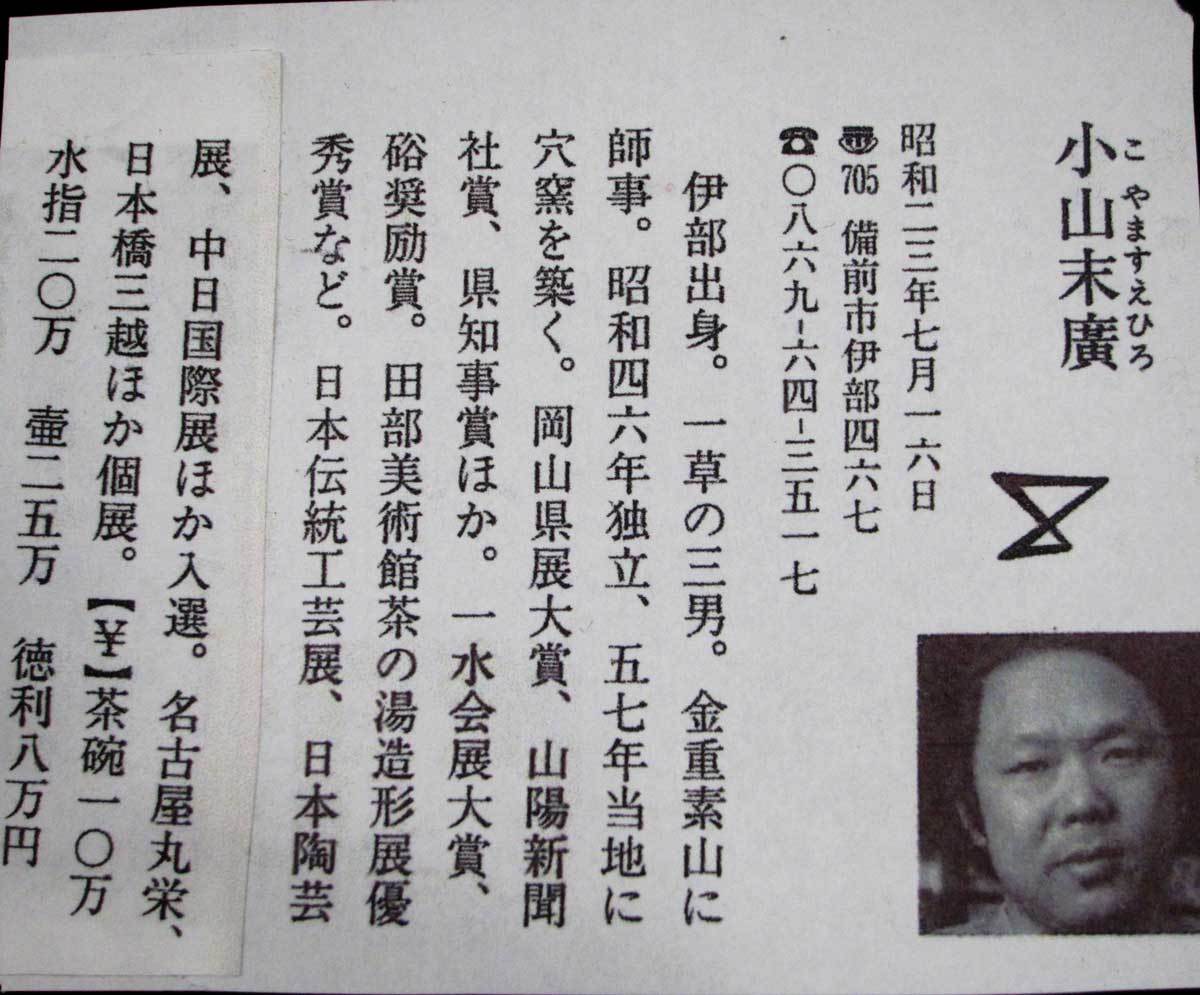 こやますえひろ
小山末廣
昭和二三年七月一六日
705 備前市伊部四六七
☎〇八六九-六四-三五一七
伊部出身。一草の三男。金重素山に
師事。昭和四六年独立、五七年当地に
穴窯を築く。岡山県展大賞、山陽新聞
社賞、県知事賞ほか。一水会展大賞、
硲奨励賞。田部美術館茶の湯造形展優
秀賞など。日本伝統工芸展、日本陶芸
展、中日国際展ほか入選。名古屋丸栄、
日本橋三越ほか個展。【¥】茶碗一〇万
水指二〇万 壷二五万 徳利八万円